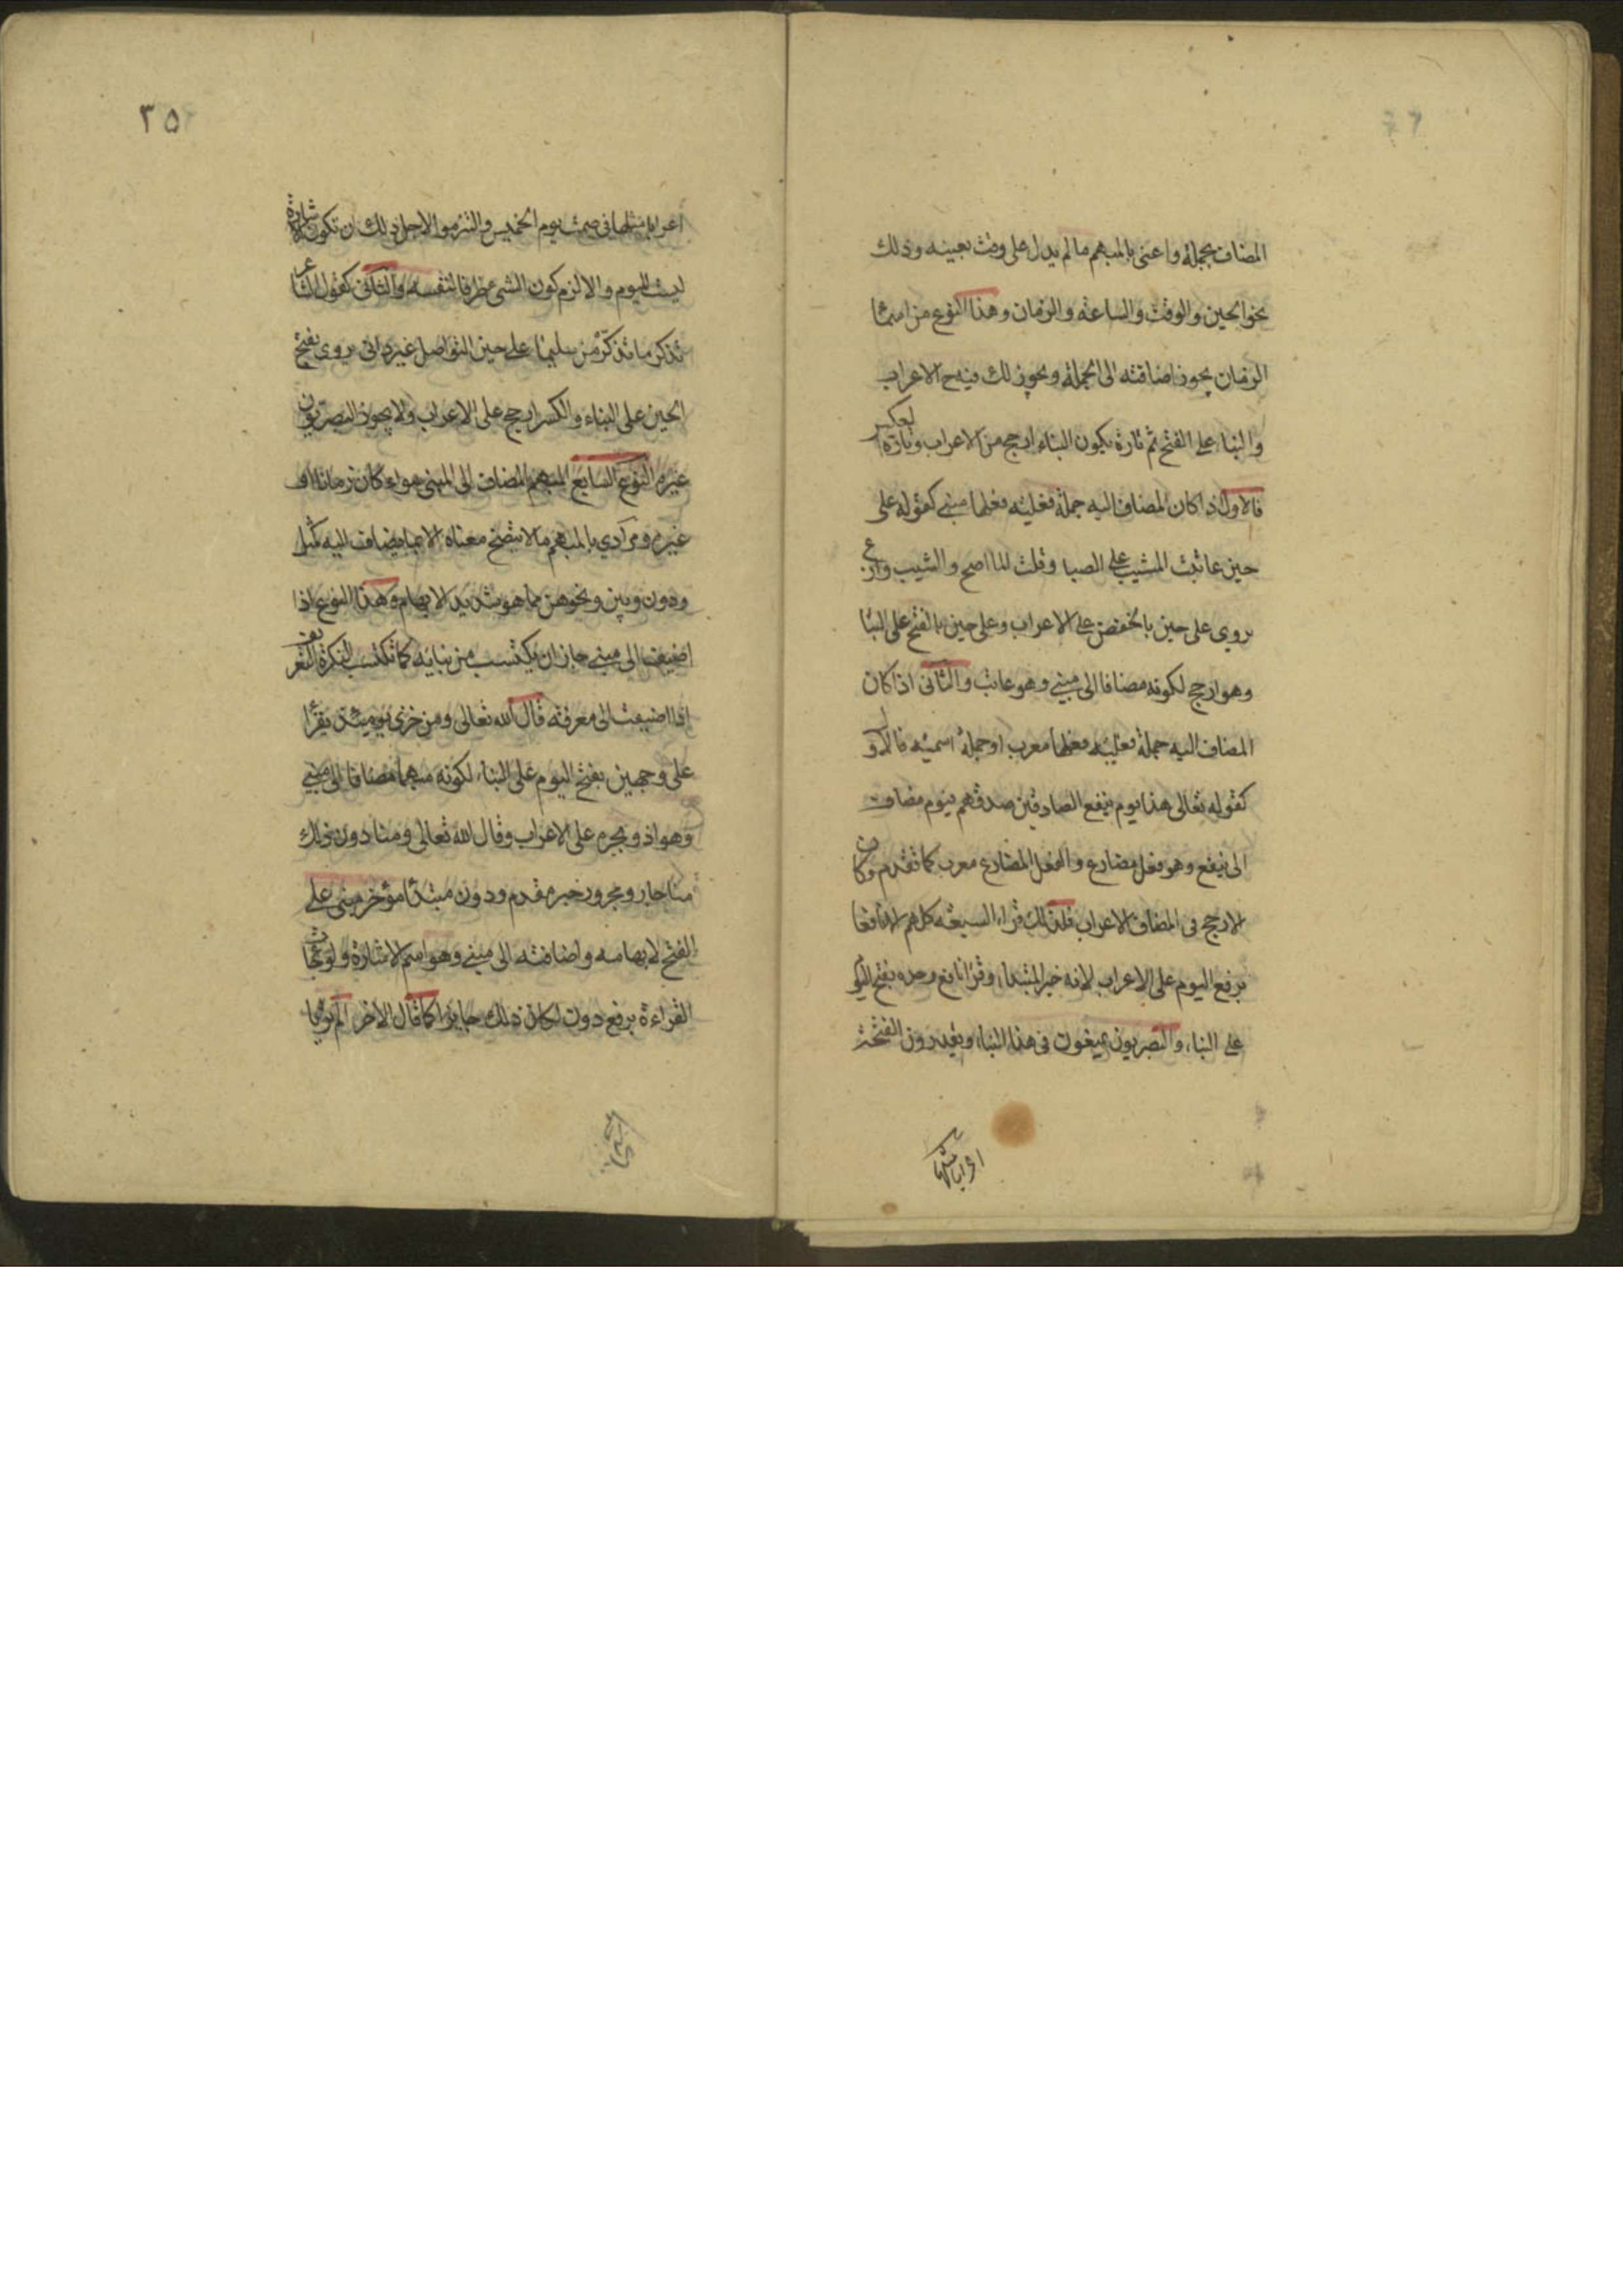 المضاف بجملة واعنى بالمبهم ما لم يدل على وقت بعينه وذلك
نحو الحين والوقت والساعة والزمان وهذا النوع من اسما
الزمان يجوز اضافته الى الجملة ويجوز لك فيه ح الاعراب
والبنا على الفتح ثم تارة يكون البناء ارجح من الاعراب وتارة بالعكس
فالاول اذا كان المضاف اليه جملة فعلية فعلها مبني كقوله على
حين عاتبت المشيب على الصبا وقلت الما اصح والشيب وازع
يروى على حين بالخفض على الاعراب وعلى حين بالفتح على البنا
وهو ارجح لكونه مضافا الى مبني وهو عاتب والثانى اذا كان
المضاف اليه جملة فعلية فعلها معرب او جملة اسمية فالاول
كقوله تعالى هذا يوم ينفع الصادقين صدقهم فيوم مضاف
الى ينفع وهو فعل مضارع والفعل المضارع معرب كما تقدم وكان
الارجح فى المضاف الاعراب فلذلك قراء السبعة كلهم الا نافعا
برفع اليوم على الاعراب لانه خبر المبتداء وقرا نافع وحده بفتح اليوم
على البناء والبصريون يمنعون فى هذا البناء ويقدرون الفتحة
اعرابا مثلها
٣٥
اعرابا مثلها فى صمت يوم الخميس والتزموا لاجل ذلك ان تكون الاشارة
ليست لليوم والا لزم كون الشى ظرفا لنفسه والثانى كقول الشاعر
تذكر ما تذكر من سليما على حين التواصل غير دانى يروى بفتح
الحين على البناء والكسر ارجح على الاعراب ولا يجوز البصريون
غيره النوع السابع المبهم المضاف الى المبنى سواء كان زمانا او
غيره ومرادي بالمبهم ما لا يتضح معناه الا بما يضاف اليه كمثل
ودون وبين ونحوهن مما هو شديد الابهام وهذا النوع اذا
اضيف الى مبني جاز ان يكتسب من بنايه كما تكتسب النكرة التعريف
اذا اضيفت الى معرفة قال الله تعالى ومن خزى يومئذ يقرأ
على وجهين بفتح اليوم على البناء لكونه مبهما مضافا الى مبني
وهو اذ وبجره على الاعراب وقال الله تعالى ومنا دون ذلك
منا جار ومجرور خبر مقدم ودون مبتدأ مؤخر مبني على
الفتح لابهامه واضافته الى مبني وهو اسم الاشارة ولو جاءت
القراءة برفع دون لكان ذلك جايزا كما قال الاخر الم تريا